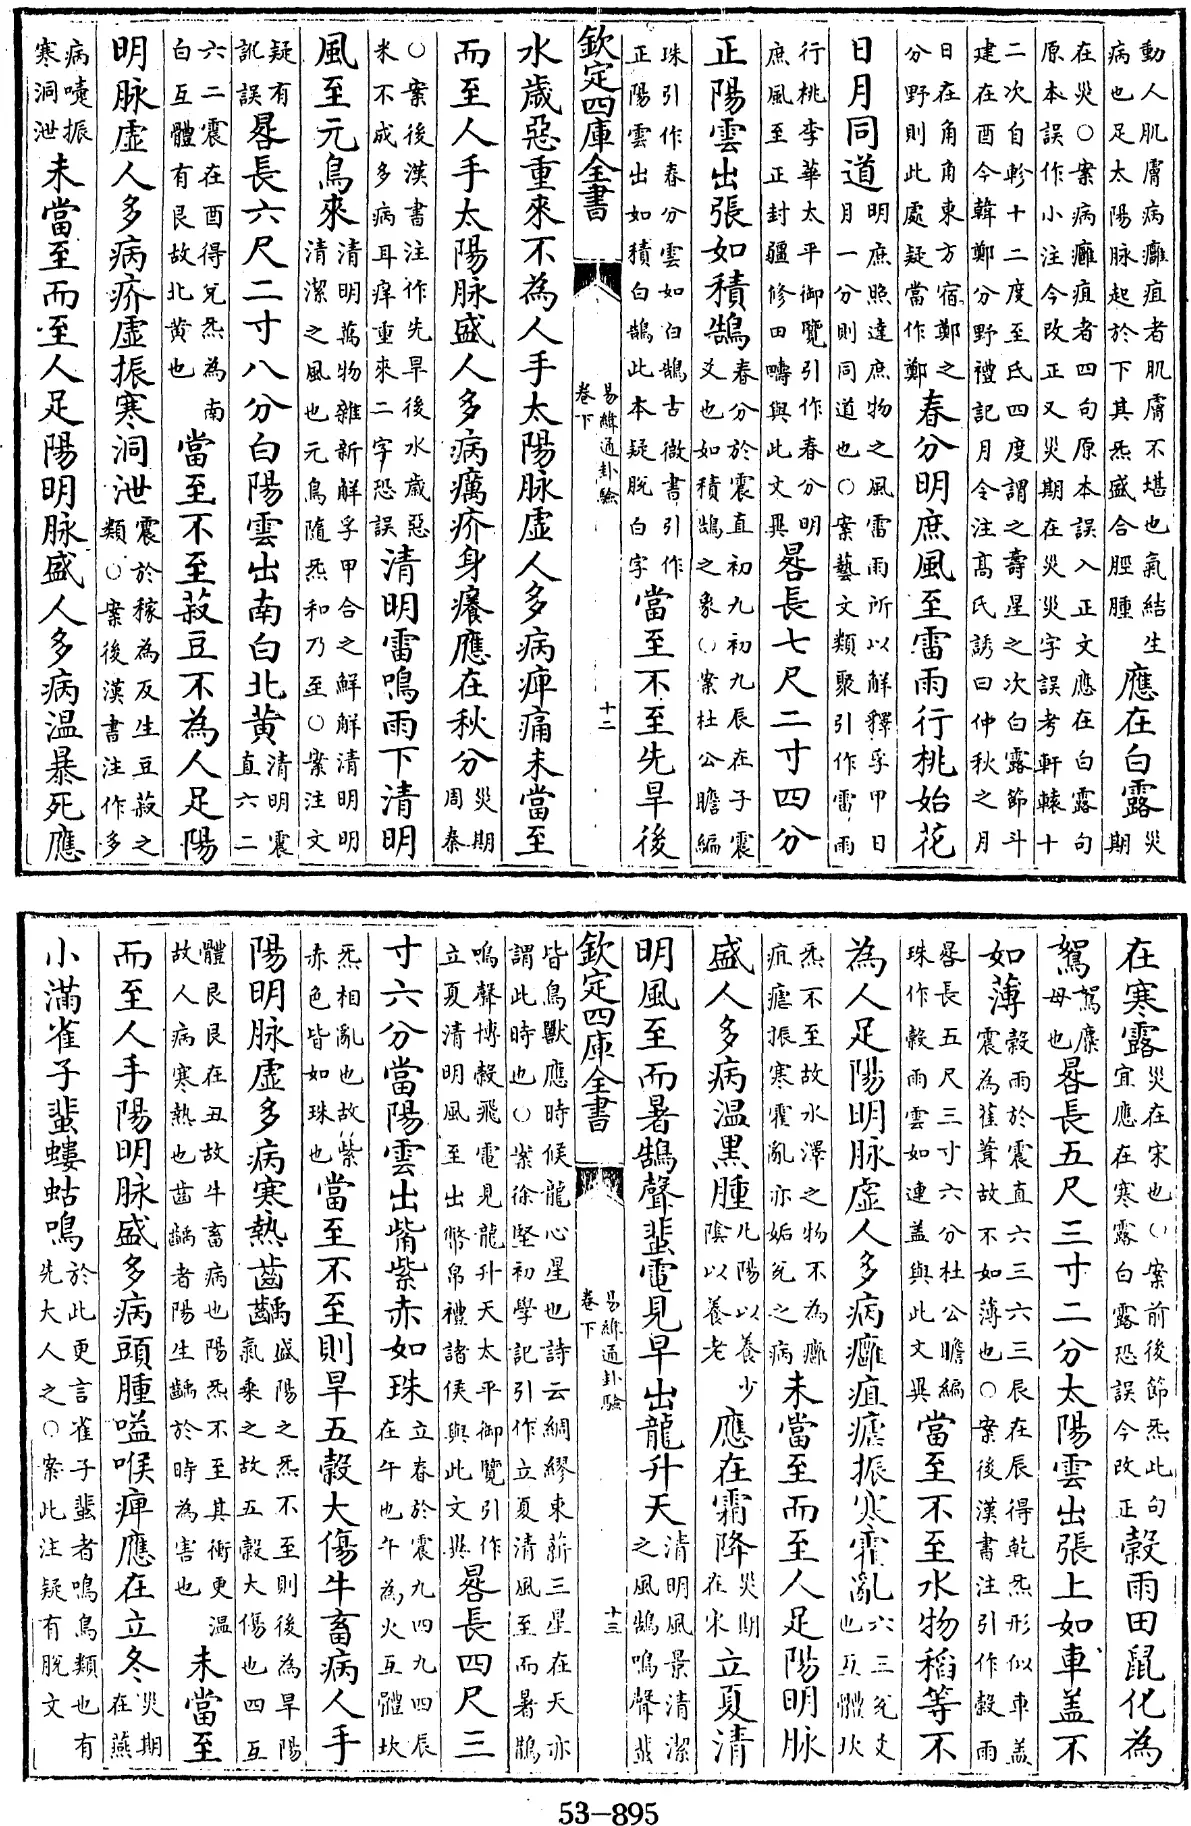 動人肌膚病癰疽者肌膚不堪也氣結生
病也足太陽脉起於下其炁盛合脛腫
應在白露
災
期
在災○案病癰疽者四句原本誤入正文應在白露句
原本誤作小注今改正又災期在災災字誤考軒轅十
二次自軫十二度至氐四度謂之壽星之次白露節斗
建在酉今韓鄭分野禮記月令注高氏誘曰仲秋之月
日在角角東方宿鄭之
分野則此處疑當作鄭
春分明庶風至雷雨行桃始花
日月同道
明庶照達庶物之風雷雨所以解釋孚甲日
月一分則同道也○案藝文類聚引作雷雨
行桃李華太平御覽引作春分明
庶風至正封疆修田疇與此文異
晷長七尺二寸四分
正陽雲出張如積鵠
春分於震直初九初九辰在子震
爻也如積鵠之象○案杜公瞻編
珠引作春分雲如白鵠古微書引作
正陽雲出如積白鵠此本疑脱白字
當至不至先旱後
欽定四庫全書
易緯通卦驗
卷下
十二
水歲惡重來不為人手太陽脉虛人多病痺痛未當至
而至人手太陽脉盛人多病癘疥身癢應在秋分
災期
周秦
○案後漢書注作先旱後水歲惡
米不成多病耳痒重來二字恐誤
清明雷鳴雨下清明
風至元鳥來
清明萬物雜新解孚甲合之解解清明
清潔之風也元鳥隨炁和乃至○案注文
疑有
訛誤
晷長六尺二寸八分白陽雲出南白北黄
清明震
直六二
六二震在酉得兌炁為南
白互體有艮故北黄也
當至不至菽豆不為人足陽
明脉虛人多病疥虛振寒洞泄
震於稼為反生豆菽之
類○案後漢書注作多
病嚏振
寒洞泄
未當至而至人足陽明脉盛人多病温暴死應
在寒露
災在宋也○案前後節炁此句
宜應在寒露白露恐誤今改正
穀雨田鼠化為
鴽
鴽麋
母也
晷長五尺三寸二分太陽雲出張上如車盖不
如薄
穀雨於震直六三六三辰在辰得乾炁形似車盖
震為萑葦故不如薄也○案後漢書注引作穀雨
晷長五尺三寸六分杜公瞻編
珠作穀雨雲如連盖與此文異
當至不至水物稻等不
為人足陽明脉虛人多病癰疽瘧振寒霍亂
六三兌爻
也互體坎
炁不至故水澤之物不為癰
疽瘧振寒霍亂亦姤兌之病
未當至而至人足陽明脉
盛人多病温黒腫
凡陽以養少
陰以養老
應在霜降
災期
在宋
立夏清
明風至而暑鵠聲蜚電見早出龍升天
清明風景清潔
之風鵠鳴聲蜚
欽定四庫全書
易緯通卦驗
卷下
十三
皆鳥獸應時候龍心星也詩云綢繆束薪三星在天亦
謂此時也○案徐堅初學記引作立夏清風至而暑鵲
鳴聲博穀飛電見龍升天太平御覽引作
立夏清明風至出幣帛禮諸侯與此文異
晷長四尺三
寸六分當陽雲出觜紫赤如珠
立春於震九四九四辰
在午也午為火互體坎
炁相亂也故紫
赤色皆如珠也
當至不至則旱五穀大傷牛畜病人手
陽明脉虛多病寒熱齒齲
盛陽之炁不至則後為旱陽
氣乘之故五穀大傷也四互
體艮艮在丑故牛畜病也陽炁不至其衝更温
故人病寒熱也齒齲者陽生齲於時為害也
未當至
而至人手陽明脉盛多病頭腫嗌喉痺應在立冬
災期
在燕
小滿雀子蜚螻蛄鳴
於此更言雀子蜚者鳴鳥類也有
先大人之○案此注疑有脱文
53-895